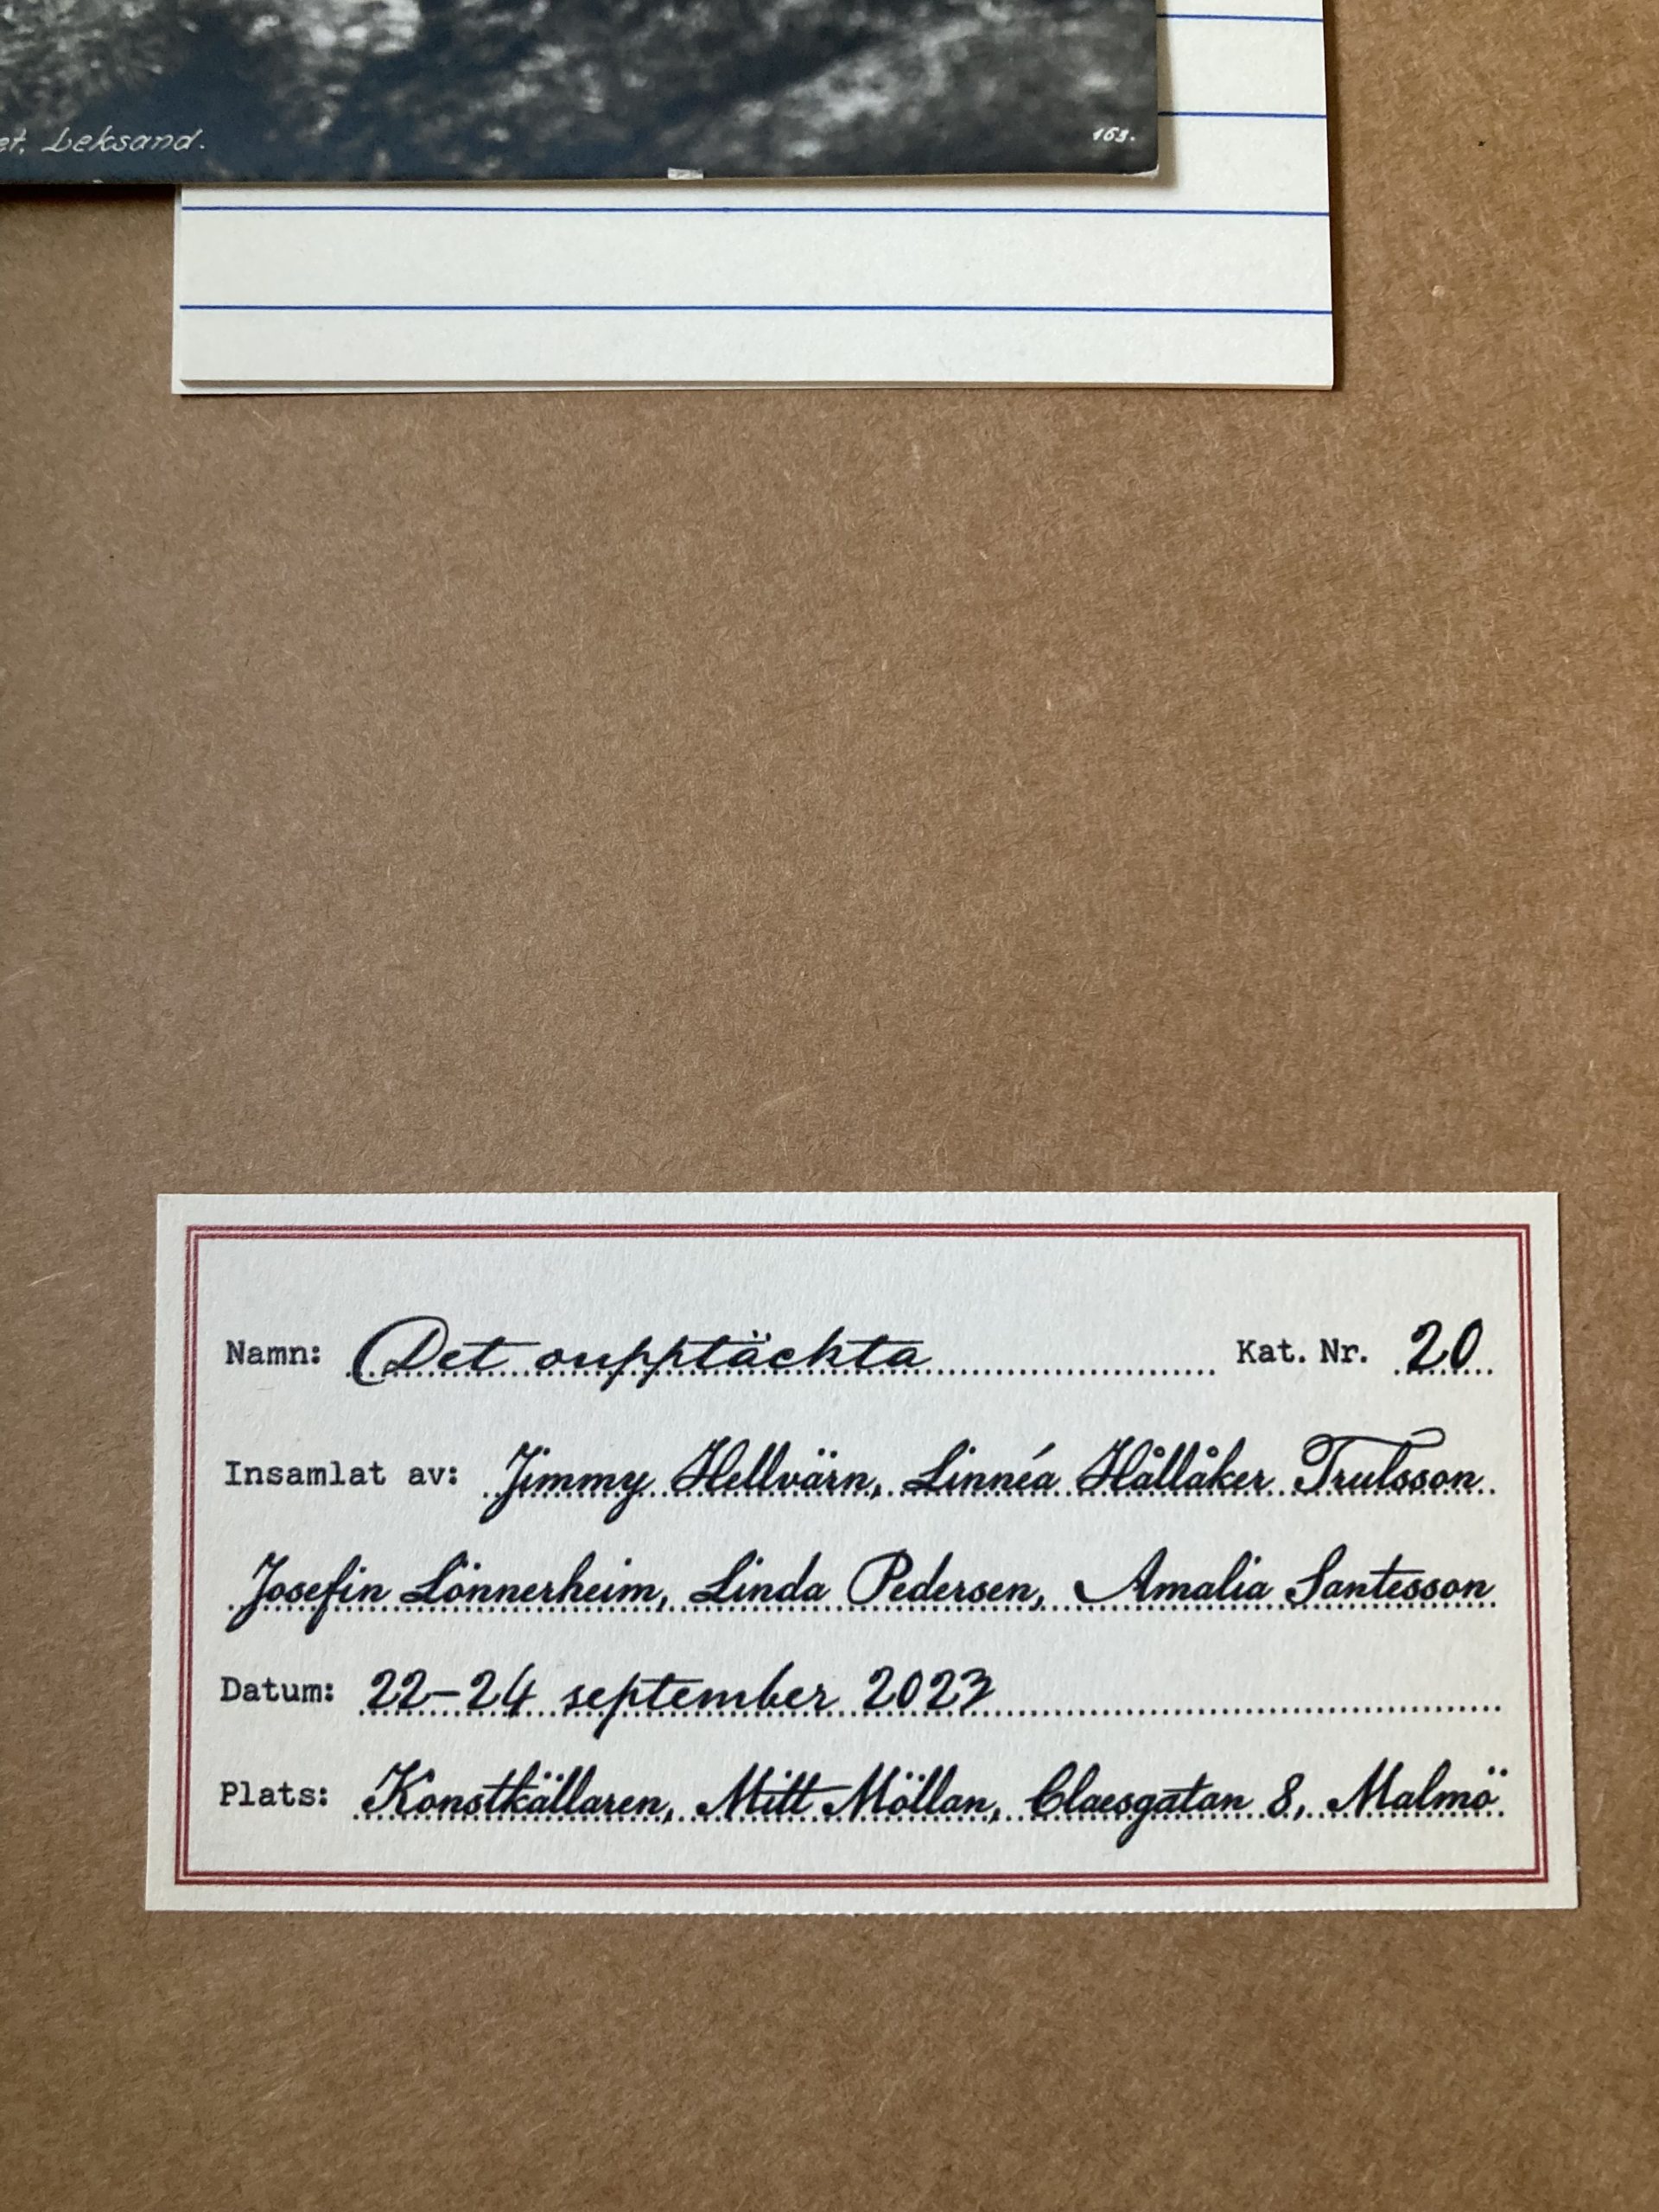 et. Leksand.
163.
Namn: Det oupptäckta Kat. Nr. 20
Insamlat av: Jimmy Hellvärn, Linnéa Hållåker Trulsson
Josefin Lönnerheim, Linda Pedersen, Amalia Santesson
Datum: 22-24 september 2023
Plats: Konstkällaren, Mitt Möllan, Claesgatan 8, Malmö